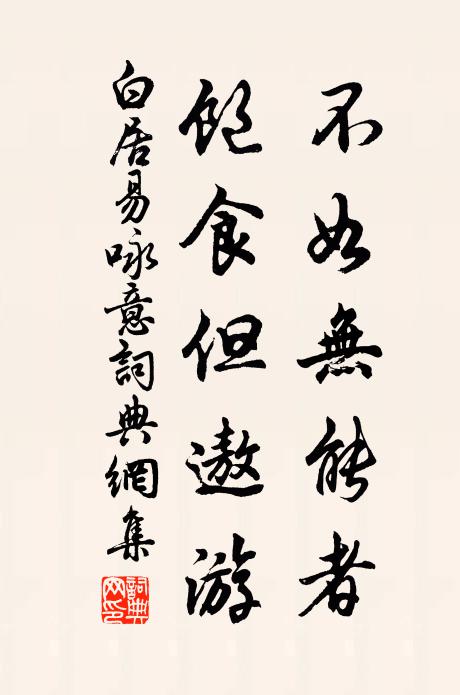 不如無能者
飽食但遨游
白居易咏意詞典網集
詞典網印